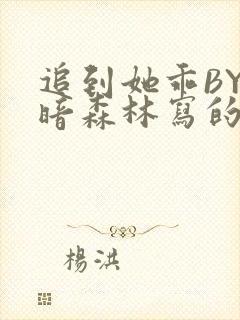 追到她乖BY
暗森林寫的
楊洪